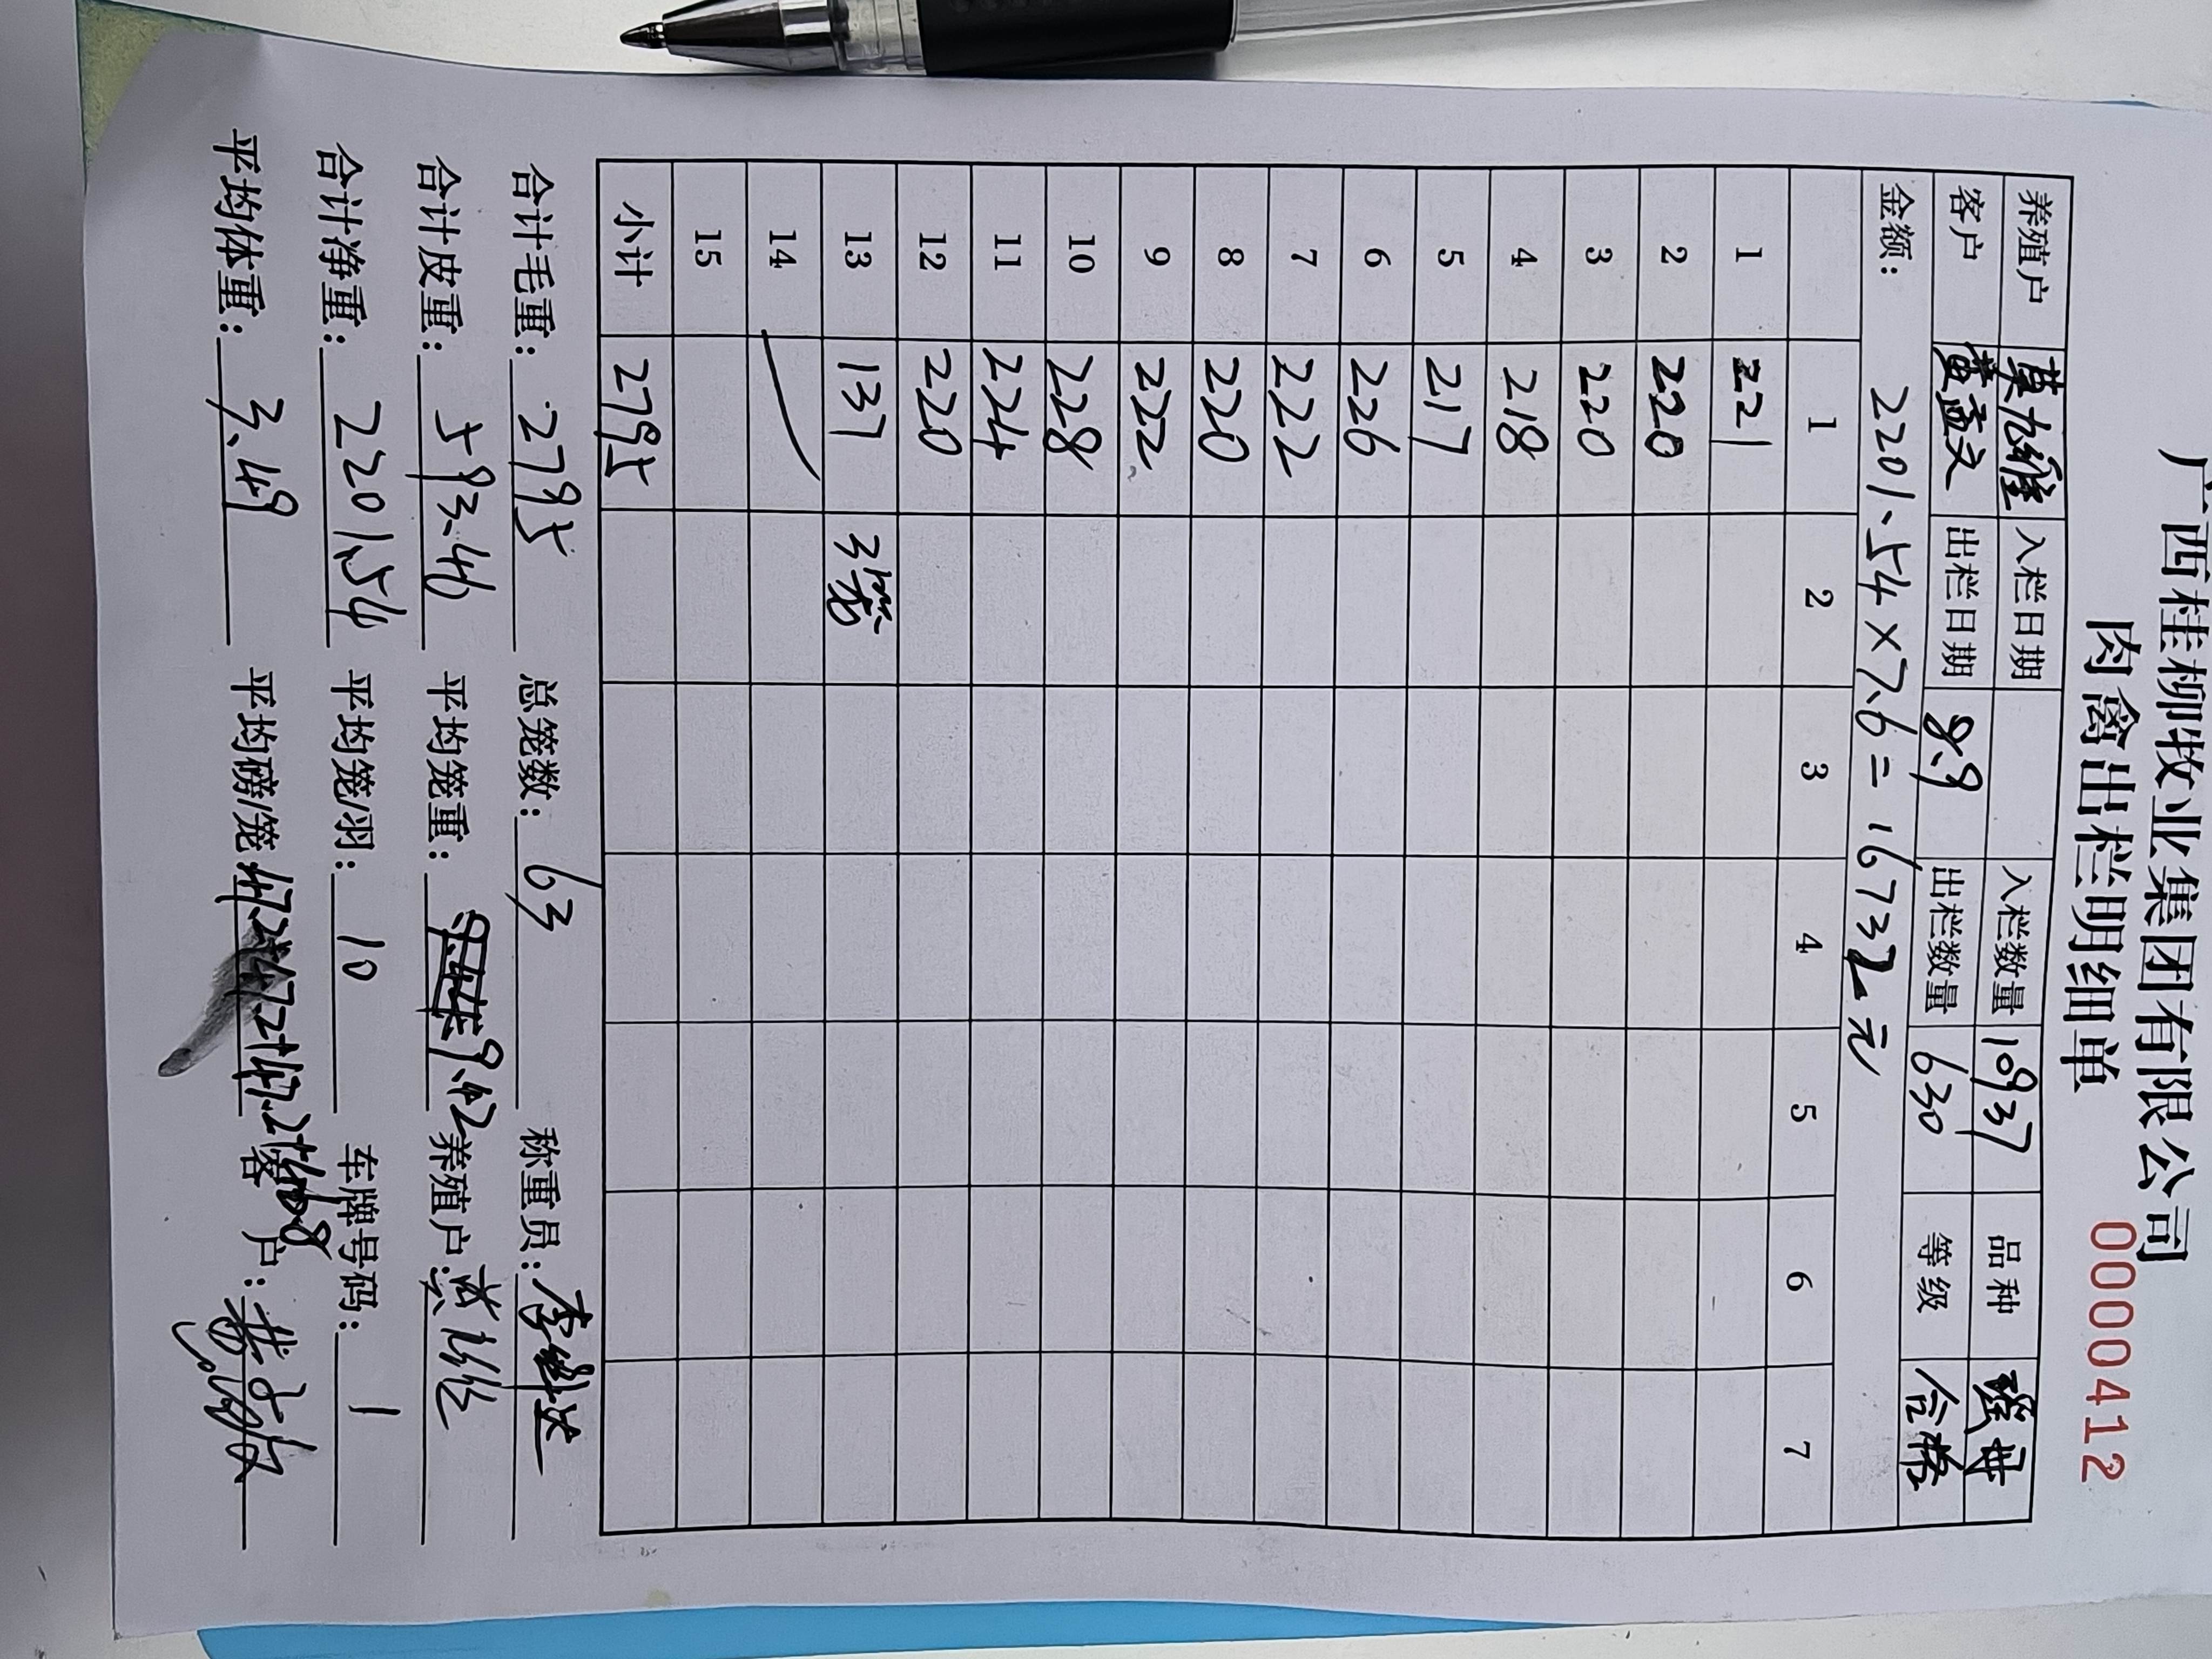 广西桂柳牧业集团有限公司
肉禽出栏明细单 00000412
养殖户 莫九维 入栏日期 入栏数量 10937 品种
客户 黄孟文 出栏日期 8.9 出栏数量 630 等级 合格
金额: 2201.54×7.6=16732元
1 2 3 4 5 6 7
1 221
2 220
3 220
4 218
5 217
6 226
7 222
8 220
9 222
10 228
11 224
12 220
13 137 3笼
14
15
小计 2795
合计毛重: 2795 总笼数: 63 称重员: 李
合计皮重: 593.46 平均笼重: 9.42 养殖户:
合计净重: 2201.54 平均笼/羽: 10 车牌号码: 1
平均体重: 3.49 平均磅/笼 客户: